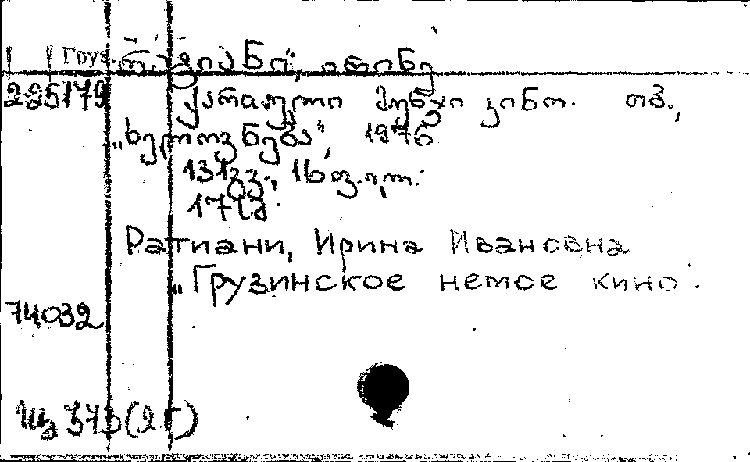 Груз. რატიანი, ირინე
225179 ქართული მუნჯი კინო. თბ.,
„ხელოვნება", 1976
131გვ., 16
Ратиани, Ирина Ивановна
„Грузинское немое кино.
74032
Щ 373(2Г)